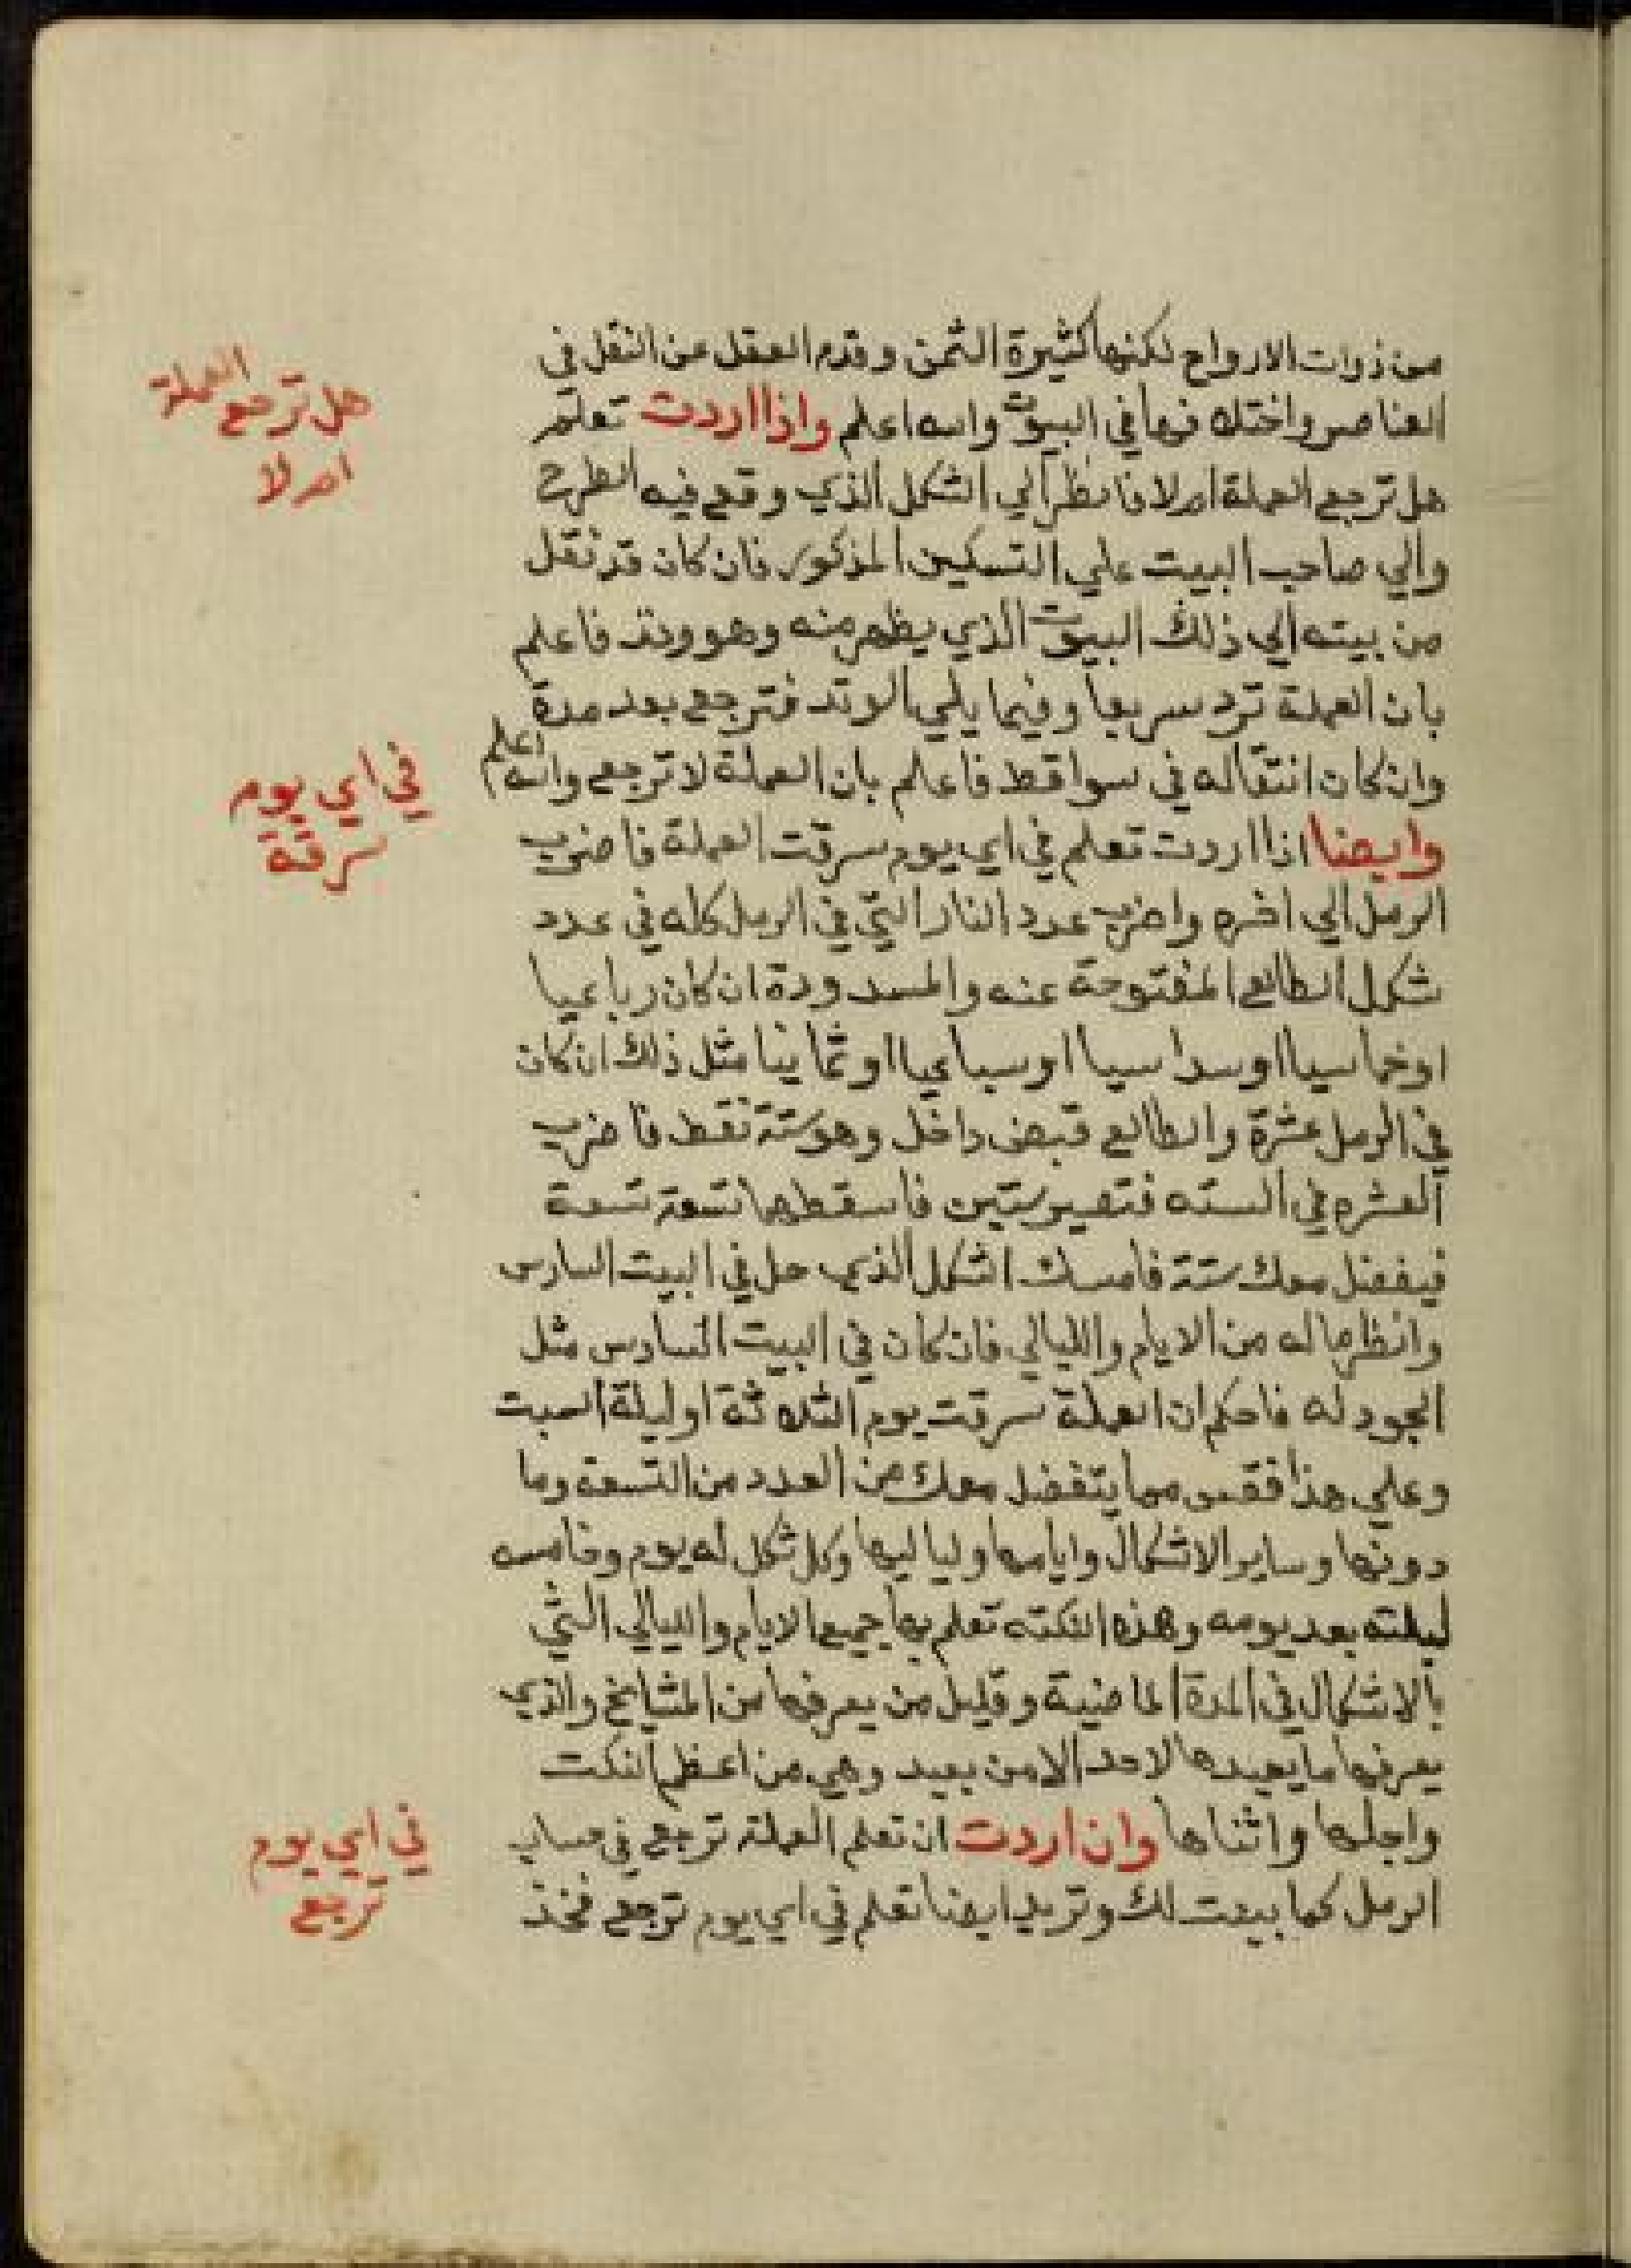 من ذوات الارواح لكنها كثيرة الثمن وقدم العقل عن النقل في
العناصر واختلافها في البيوت والله اعلم واذا اردت تعلم
هل ترجع العملة ام لا فانظر الي الشكل الذي وقع فيه الطرح
والي صاحب البيت علي التسكين المذكور فان كان قد نقل
من بيته الي ذلك البيوت الذي يظهر منه وهو وتد فاعلم
بان العملة ترد سريعا وفيما يلي الاوتد فترجع بعد مدة
وان كان انتقاله في سواقط فاعلم بان العملة لا ترجع والله اعلم
وايضا اذا اردت تعلم في اي يوم سرقت العملة فاضرب
الرمل الي اخره واضرب عدد النار التي في الرمل كله في عدد
شكل الطالع المفتوحة عنه والمسدودة ان كان رباعيا
او خماسيا او سداسيا او سباعيا او ثمانيا مثل ذلك ان كان
في الرمل عشرة والطالع قبض داخل وهو ستة نقط فاضرب
العشره في السته فتصير ستين فاسقطها تسعة تسعة
فيفضل معك ستة فامسك الشكل الذي حل في البيت السادس
وانظر ما له من الايام والليالي فان كان في البيت السادس مثل
الجودله فاحكم ان العملة سرقت يوم الثلاثة او ليلة السبت
وعلي هذا فقس مما يتفضل معك من العدد من التسعة وما
دونها وساير الاشكال وايامها ولياليها وكل شكل له يوم وخامسه
ليلته بعد يومه وهذه النكته تعلم بها جميع الايام والليالي التي
بالاشكال في المدة الماضية وقليل من يعرفها من المشايخ والذي
يعرفها ما يعيدها لاحد الا من بعيد وهي من اعظم النكت
واجلها واثناها وان اردت ان تعلم العملة ترجع في حساب
الرمل كما بيعت لك وتريد ايضا تعلم في اي يوم ترجع فخذ
هل ترجع العملة
ام لا
في اي يوم
سرقة
في اي يوم
ترجع